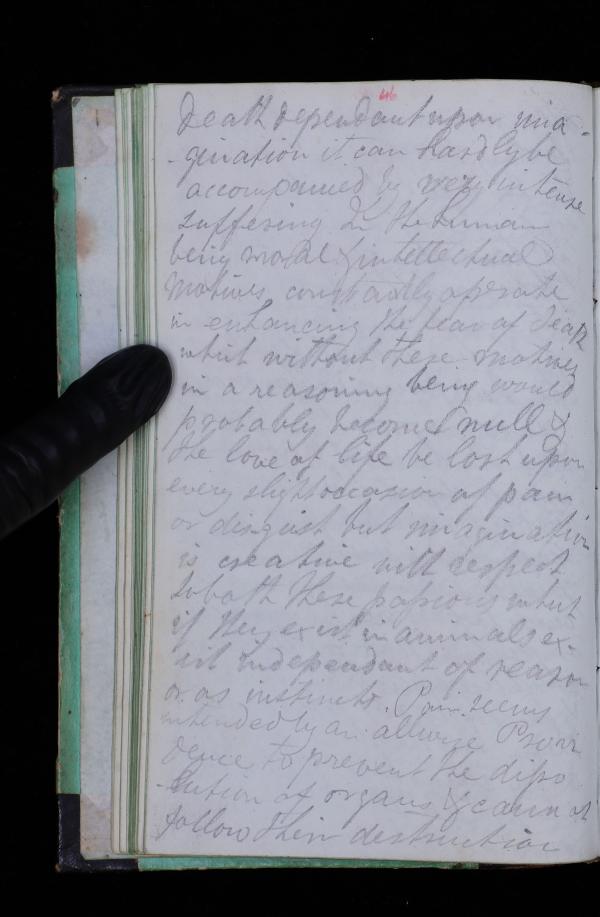 46
death dependant upon ima
-gination it can hardly be
accompanied by very intense
suffering In the human
being moral & intellectual
motives constantly operate
in enhancing the fear of death
which without these motives
in a reasoning being would
probably become null &
the love of life be lost upon
every slight occasion of pain
or disgust but imagination
is creative with respect
to both these passions which
if they exist in animals ex-
ist independant of reason
or as instincts. Pain seems
intended by an allwise Provi
dence to prevent the disso
-lution of organs & cannot
follow their destruction